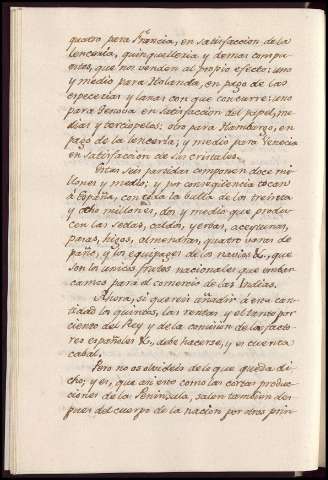 quatro para Francia, en satisfaccion de la
lenceria, quinquelleria y demas compo-
nentes, que nos vendan al propio efecto; uno
y medio para Holanda, en pago de las
especerias y lanas con que concurre: uno
para Genova en satisfaccion del papel, me-
dias y terciopelos: otro para Hamburgo, en
pago de la lenceria; y medio para Venecia
en satisfaccion de los cristales.
Estas seis partidas componen doce mi-
llones y medio; y por conseqüencia tocan
á España, con toda la bulla de los treinta
y ocho millones, dos y medio que produ-
cen las sedas, caldos, yerbas, aceytunas,
pasas, higos, almendras, quatro varas de
paño, y los equipages de los navios &c, que
son los unicos frutos nacionales que embar-
camos para el comercio de las Indias.
Ahora, si quereis añadir á esta can-
tidad los quintos, las rentas y el tanto por
ciento del Rey y de la comision de los facto-
res españoles &c, debe hacerse, y es cuenta
cabal.
Pero no os olvideis de lo que queda di-
cho; y es, que asi esto como las cortas produc-
ciones de la Peninsula, salen tambien des-
pues del cuerpo de la nacion por otros prin-